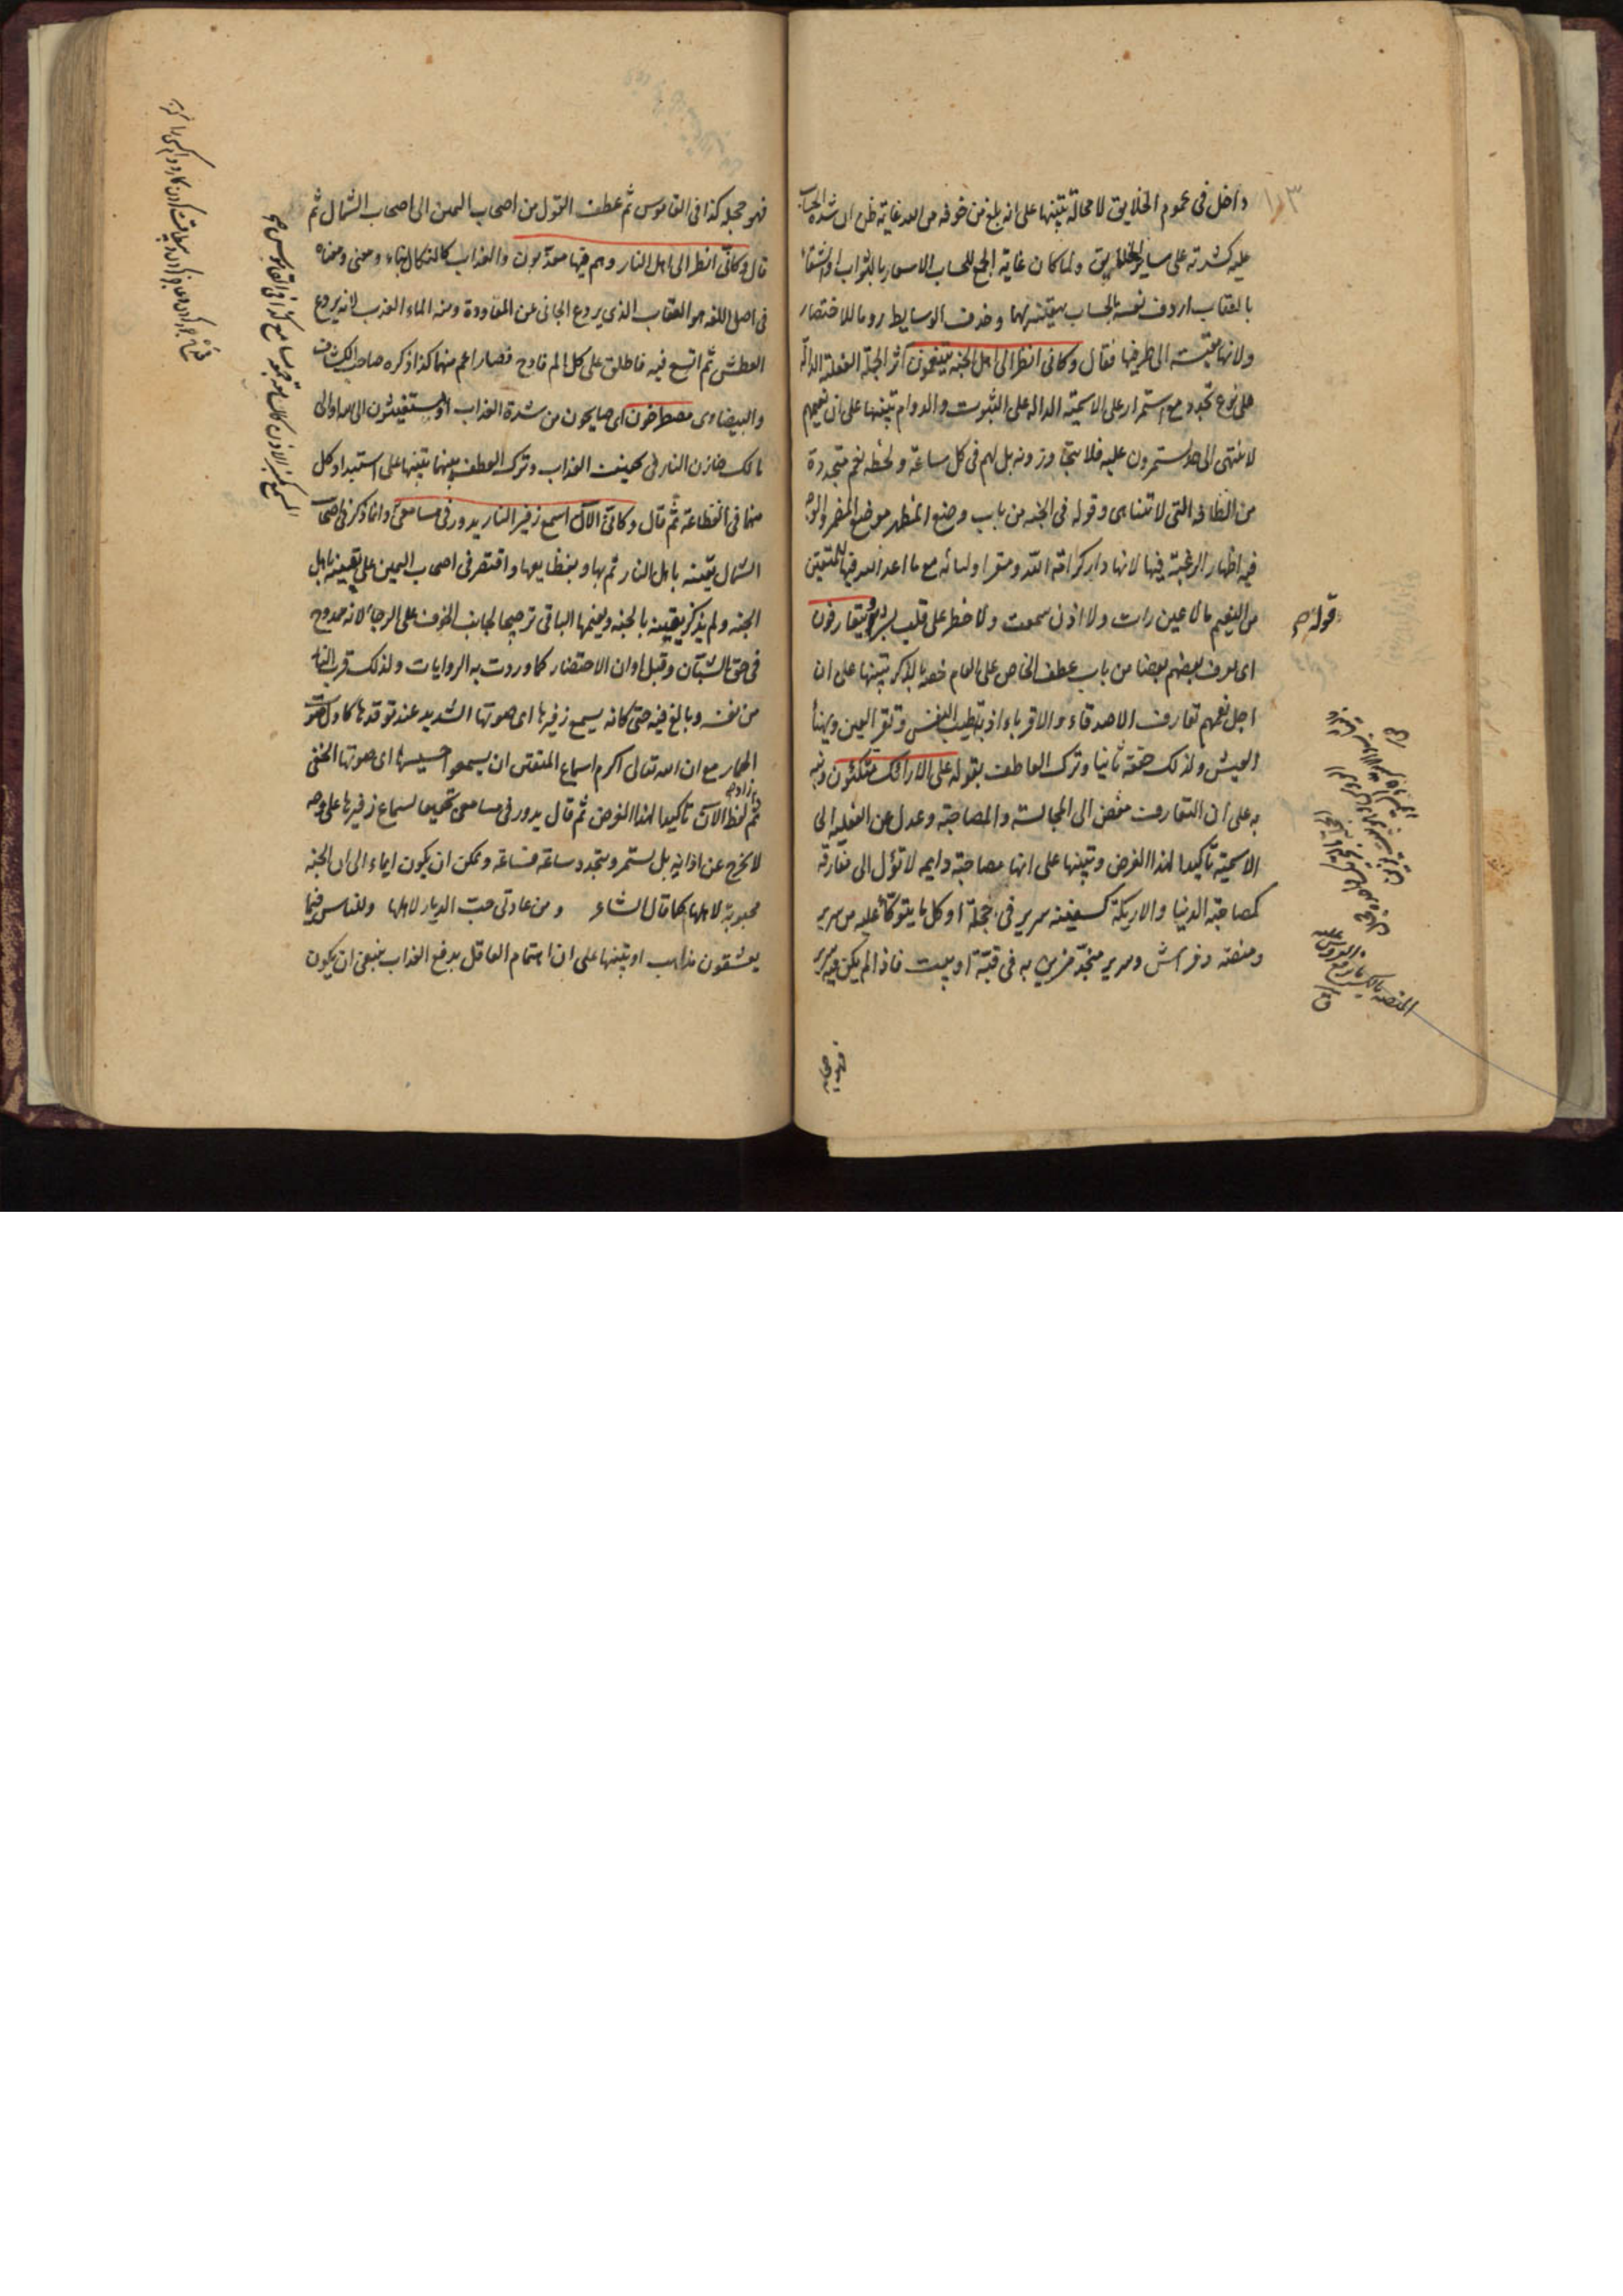 داخل فى عموم الخلايق لا محالة تنبيها على انه بلغ من خوفه من الله غايته ظن ان شدة الحساب
عليه كشدته على ساير الخلايق ولما كان غاية الجمع للحساب الاسعار بالثواب او الشقاء
بالعقاب اردف نفسه بالحساب بيقينه بهما وحذف الوسايط روما للاختصار
ولانها منتهية الى طرفيها فقال وكانى انظر الى اهل الجنة يتنعمون آثر الجملة الفعلية الدالة
على نوع تجدد مع استمرار على الاسمية الدالة على الثبوت والدوام تنبيها على ان نعيمهم
لا ينتهى الى حد يستمرون عليه فلا يتجاوزونه بل لهم فى كل ساعة ولحظة نعم متجددة
من الطافه التى لا تتناهى وقوله فى الجنة من باب وضع المظهر موضع المضمر والوجه
فيه اظهار الرغبة فيها لانها دار كرامة الله ومقر اوليائه مع ما اعد الله فيها للمتقين
من النعيم ما لا عين رات ولا اذن سمعت ولا خطر على قلب بشر ويتعارفون
اى يعرف بعضهم بعضا من باب عطف الخاص على العام خصه بالذكر تنبيها على ان
اجل نعمهم تعارف الاصدقاء والاقرباء اذ به تطيب النفس وتقر العين ويهنأ
العيش ولذلك حققه ثانيا وترك العاطف بقوله على الارائك متكئون ونبه
به على ان التعارف مفض الى المجالسة والمصاحبة وعدل عن الفعلية الى
الاسمية تاكيدا لهذا الغرض وتنبيها على انها مصاحبة دايمة لا تؤل الى مفارقة
كمصاحبة الدنيا والاريكة كسفينة سرير فى حجلة او كل ما يتوكأ عليه من سرير
ومنصة وفراش وسرير منجد مزين به فى قبة او بيت فاذا لم يكن فيه سرير
قوله
فهو حجلة كذا فى القاموس ثم عطف القول من اصحاب اليمين الى اصحاب الشمال ثم
قال وكانى انظر الى اهل النار وهم فيها معذبون والعذاب كالنكال بناء ومعنى ومعناه
فى اصل اللغة هو العقاب الذى يردع الجانى عن المعاودة ومنه الماء العذب لانه يردع
العطش ثم اتسع فيه فاطلق على كل الم فادح فصار اعم منهما كذا ذكره صاحب الكشاف
والبيضاوى مصطرخون اى صايحون من شدة العذاب او يستغيثون الى الله او الى
مالك خازن النار فى تخفيف العذاب وترك العطف بينهما تنبيها على استبداد كل
منها فى الفظاعة ثم قال وكانى الآن اسمع زفير النار يدور فى مسامعى وانما ذكر فى اصحاب
الشمال يقينه باهل النار ثم بها وبفظايعها واقتصر فى اصحاب اليمين على يقينه باهل
الجنة ولم يذكر يقينه بالجنة ونعيمها الباقى ترجيحا لجانب الخوف على الرجاء لانه ممدوح
فى حق الشبان وقبل اوان الاحتضار كما وردت به الروايات ولذلك قرب النار
من نفسه وبالغ فيه حتى كانه يسمع زفيرها اى صوتها الشديد عند توقدها كاول صوت
الحمار مع ان الله تعالى اكرم اسماع المتقين ان يسمعوا حسيسها اى صوتها الخفى
ثم زاد لفظ الآن تاكيدا لهذا الغرض ثم قال يدور فى مسامعى تحقيقا لسماع زفيرها على وجه
لا يخرج عن اذانه بل يستمر ويتجدد ساعة فساعة ويمكن ان يكون ايماء الى ان الجنة
محبوبة لاهلها كما قال الشاعر ومن عادتى حب الديار لاهلها وللناس فيما
يعشقون مذاهب او تنبيها على ان اهتمام العاقل بدفع العذاب ينبغى ان يكون